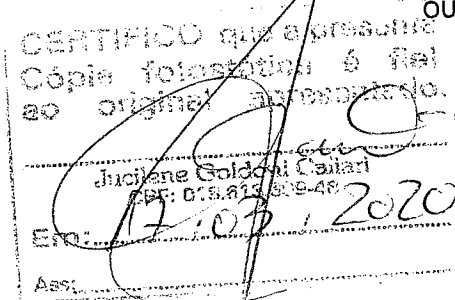 OU
CERTIFICO que a presente
Cópia fotostática é fiel
ao original apresentado.
Jucilene Goldoni Callari
CPF:
Em: 17 . 03 . 2020
Ass: